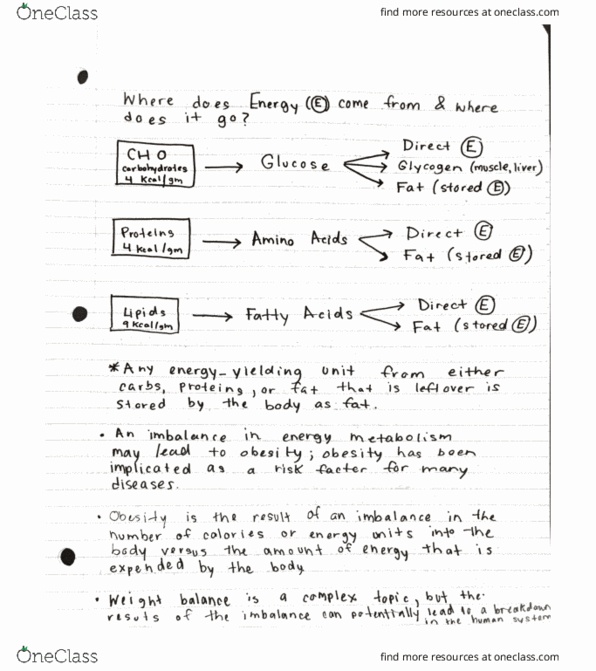 OneClass
find more resources at oneclass.com
Where does Energy (E) come from & where
does it go?
CHO
carbohydrates
4 Kcal/gm
Glucose
Direct E
Glycogen (muscle, liver)
Fat (stored E)
Proteins
4 Kcal/gm
Amino Acids
Direct E
Fat (stored E)
Lipids
9 Kcal/gm
Fatty Acids
Direct E
Fat (stored E)
*Any energy-yielding unit from either
carbs, proteins, or fat that is leftover is
stored by the body as fat.
• An imbalance in energy metabolism
may lead to obesity; obesity has been
implicated as a risk factor for many
diseases.
• Obesity is the result of an imbalance in the
number of calories or energy units into the
body versus the amount of energy that is
expended by the body
• Weight balance is a complex topic, but the
resuts of the imbalance can potentially lead to a breakdown
in the human system
OneClass
find more resources at oneclass.com